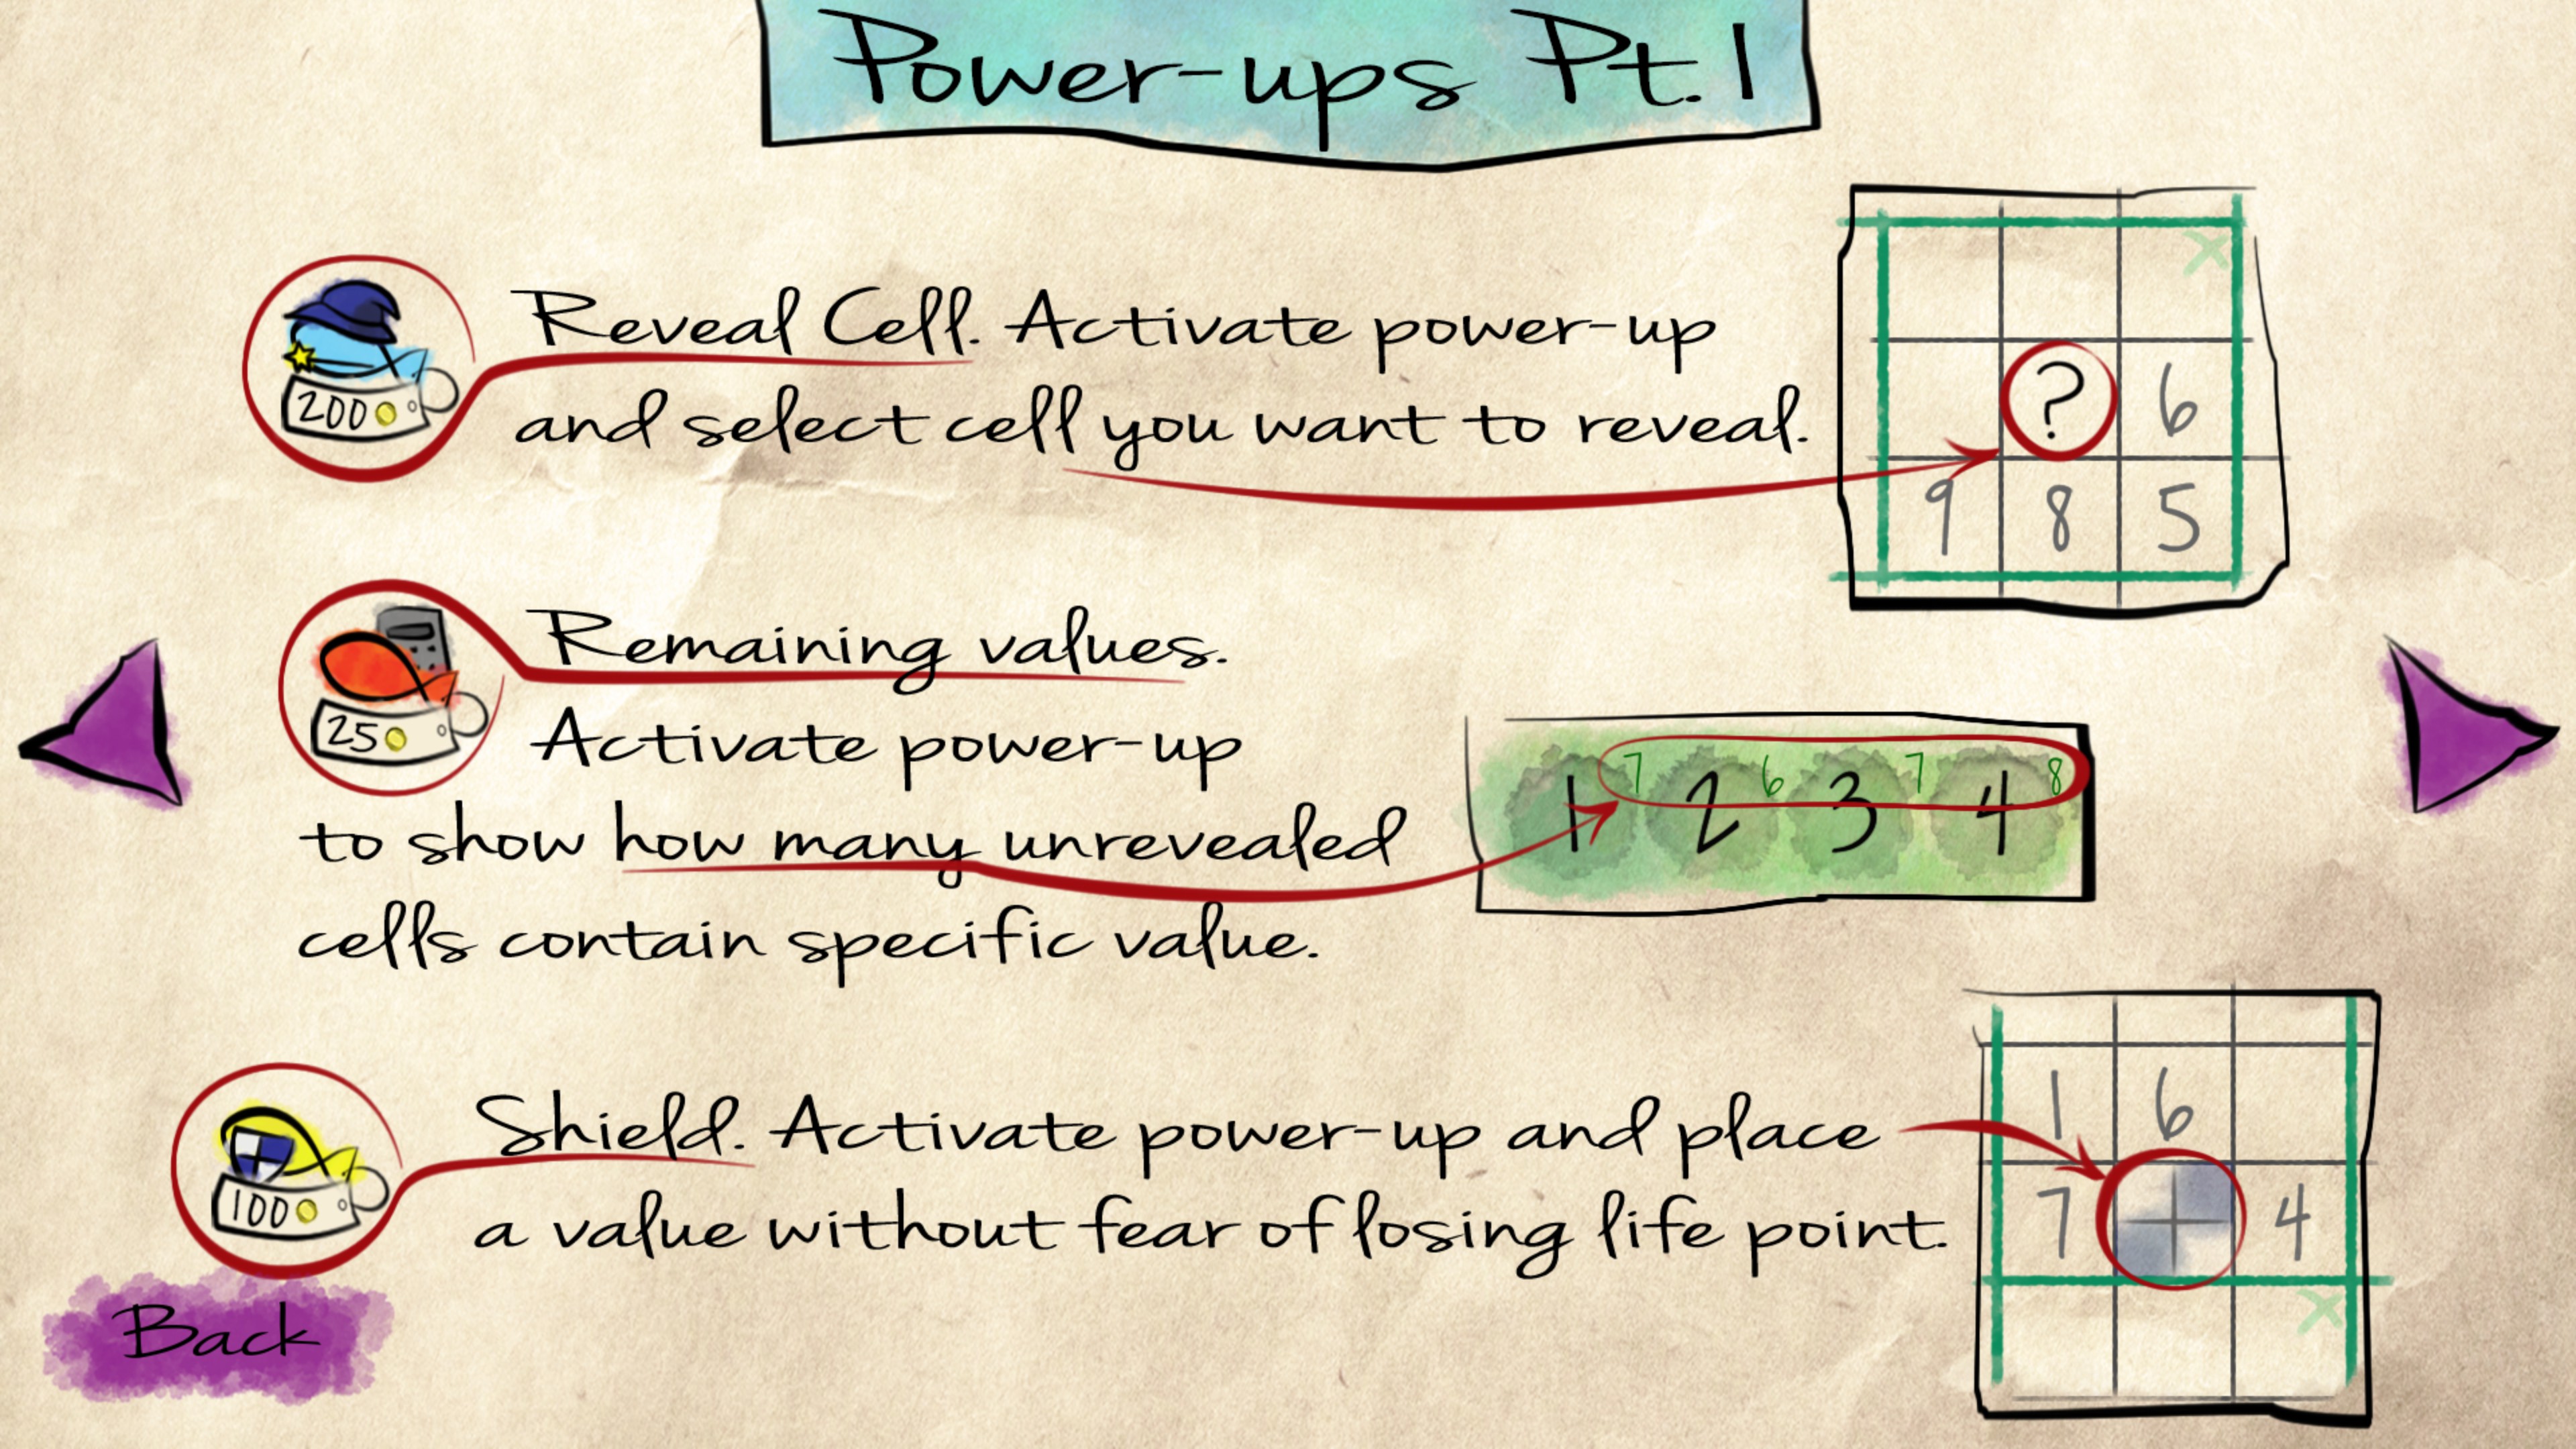 Power-ups Pt.1
200
Reveal Cell. Activate power-up
and select cell you want to reveal.
? 6
9 8 5
25
Remaining values.
Activate power-up
to show how many unrevealed
cells contain specific value.
1 7 2 6 3 7 4 8
100
Shield. Activate power-up and place
a value without fear of losing life point.
1 6
7 4
Back